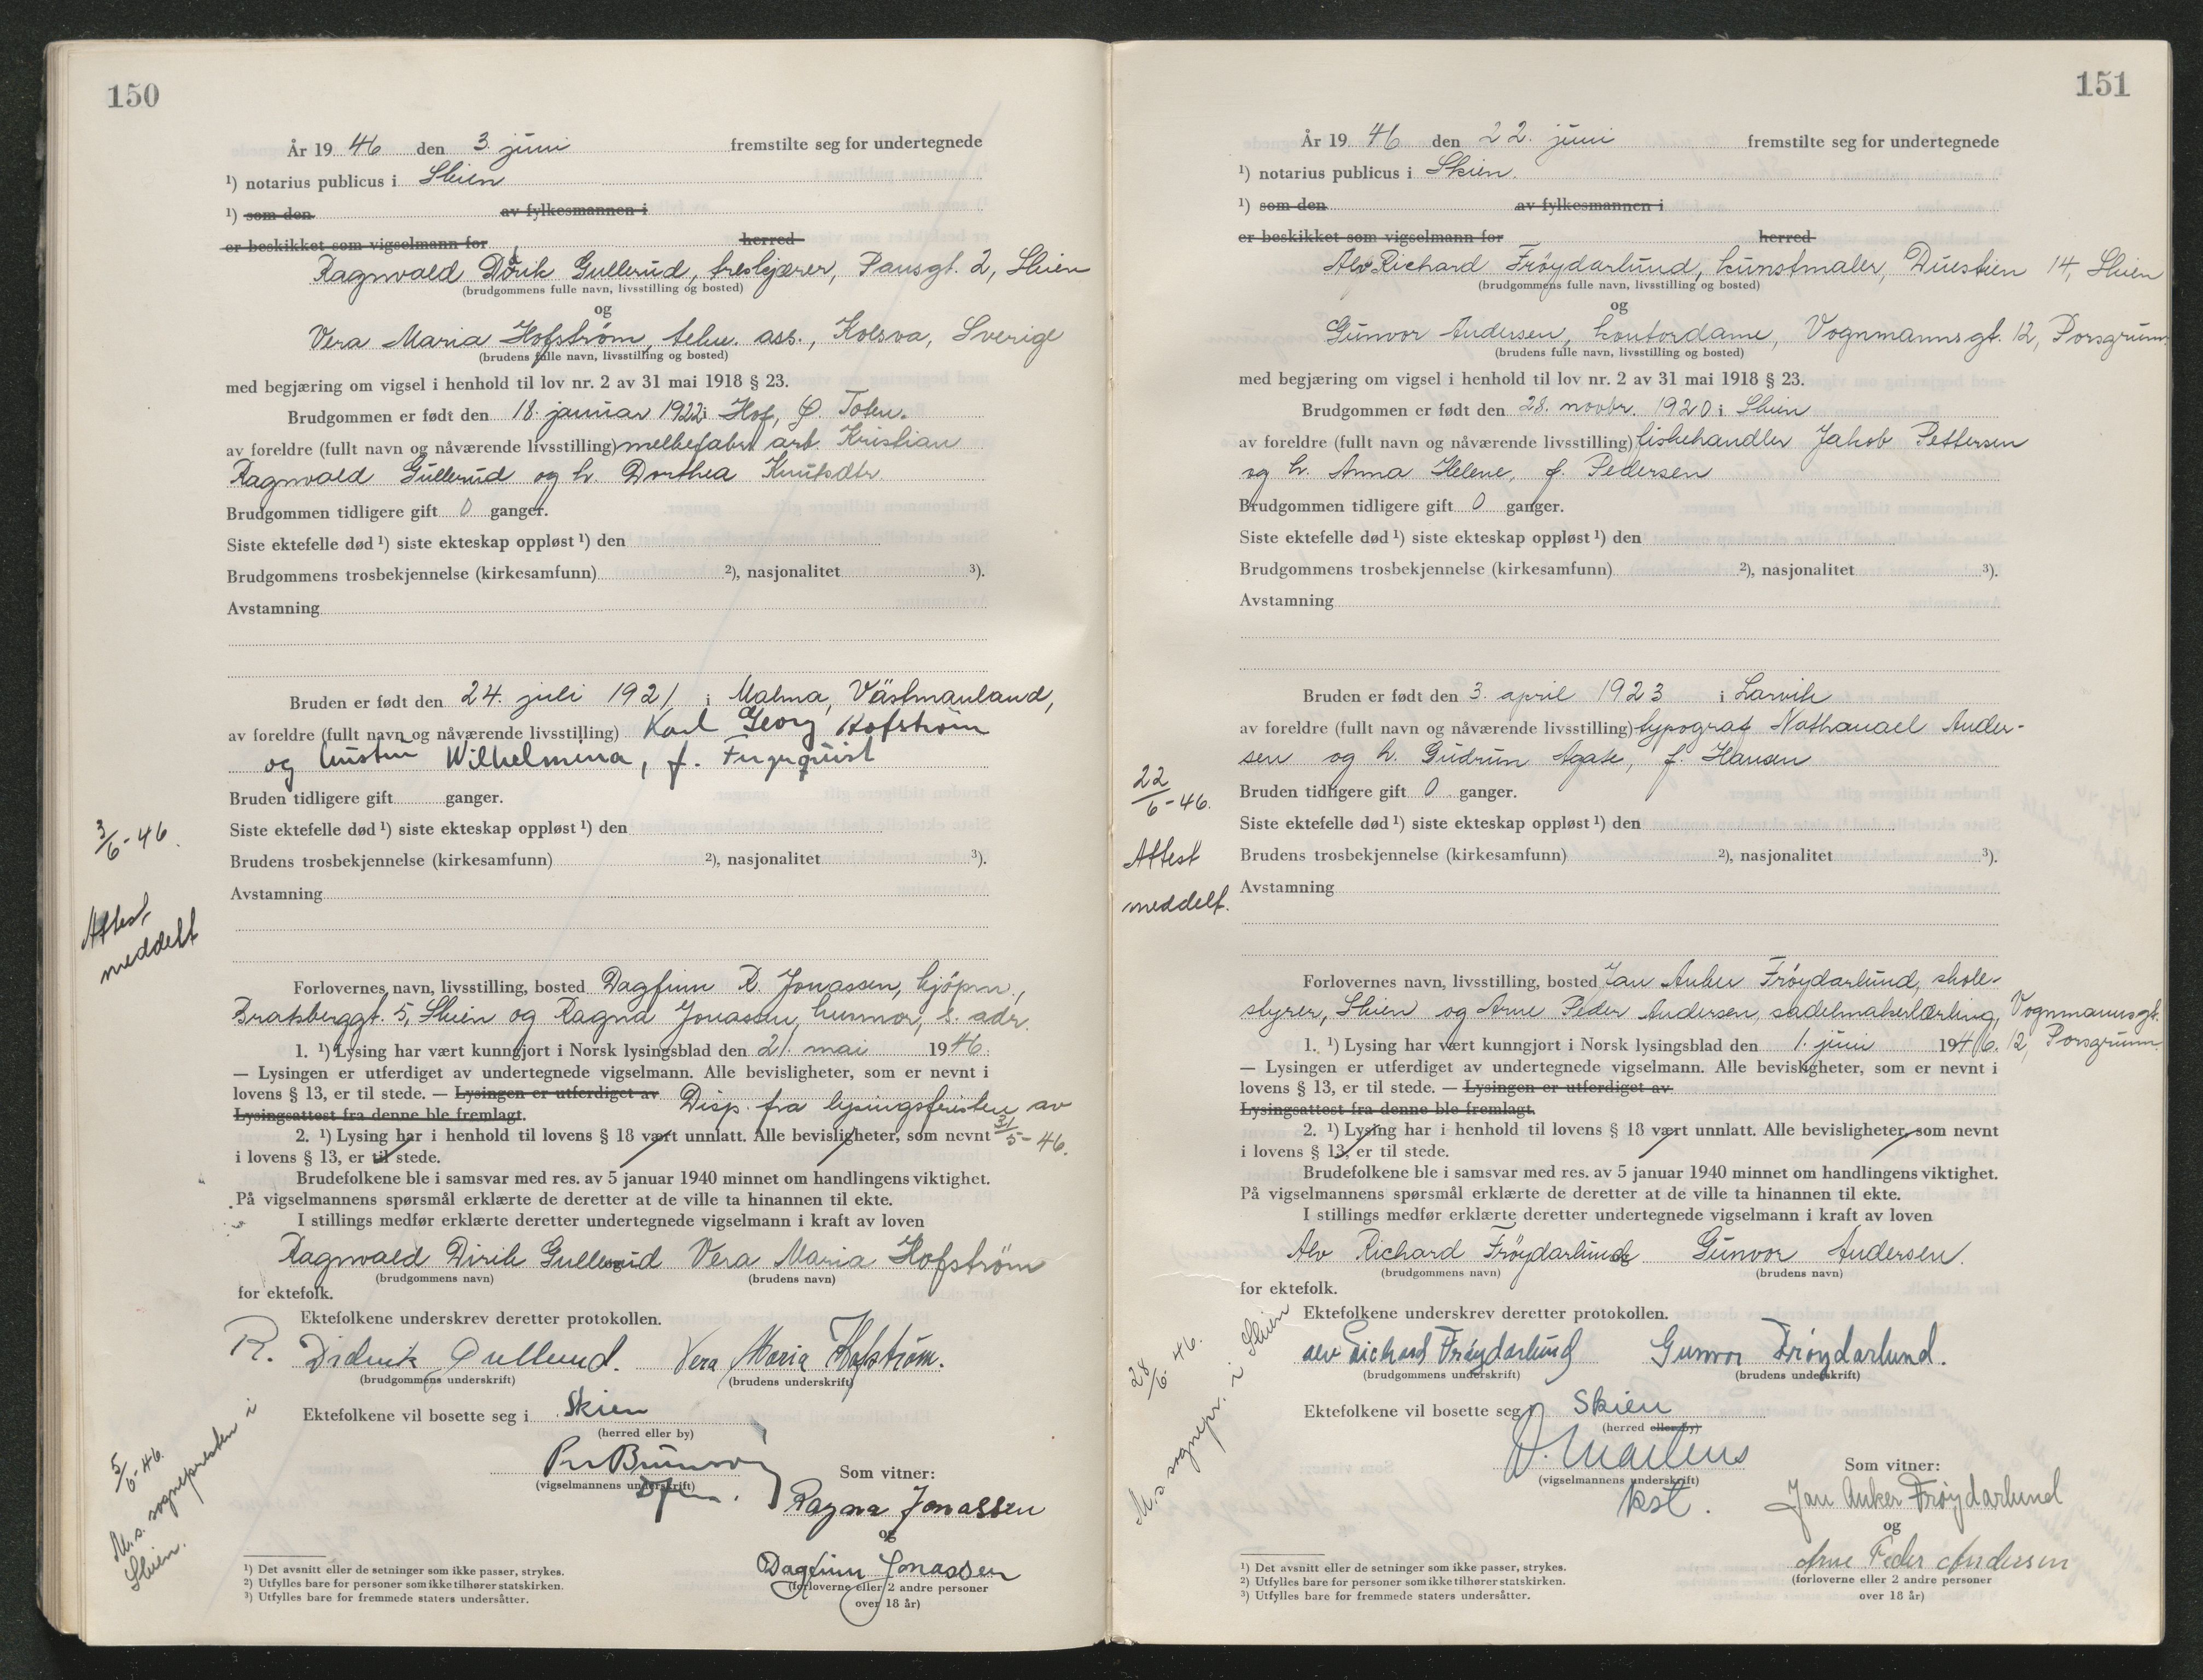 150
År 19 46 den 3. juni fremstilte seg for undertegnede
¹) notarius publicus i Skien
¹) som den av fylkesmannen i
er beskikket som vigselmann for herred
Ragnvald Dirik Gullerud, treskjærer, Pausgt. 2, Skien
(brudgommens fulle navn, livsstilling og bosted)
og
Vera Maria Hofstrøm, tekn. ass., Kolsva, Sverige
(brudens fulle navn, livsstilling og bosted)
med begjæring om vigsel i henhold til lov nr. 2 av 31 mai 1918 § 23.
Brudgommen er født den 18. januar 1922 i Hof, Ø. Toten.
av foreldre (fullt navn og nåværende livsstilling) melkefabr. arb. Kristian
Ragnvald Gullerud og h. Dorthea Knutsdtr
Brudgommen tidligere gift 0 ganger.
Siste ektefelle død ¹) siste ekteskap oppløst ¹) den
Brudgommens trosbekjennelse (kirkesamfunn) ²), nasjonalitet ³).
Avstamning
Bruden er født den 24. juli 1921 i Malma, Västmanland,
av foreldre (fullt navn og nåværende livsstilling) Karl Georg Hofstrøm
og Wilhelmina, f.
Bruden tidligere gift ganger.
Siste ektefelle død ¹) siste ekteskap oppløst ¹) den
3/6-46.
Brudens trosbekjennelse (kirkesamfunn) ²), nasjonalitet ³).
Avstamning
Attest
meddelt
Forlovernes navn, livsstilling, bosted Dagfinn R. Jonassen, kjøpm.,
Bratsberggt. 5, Skien og Ragna Jonassen, husmor, s. adr.
1. ¹) Lysing har vært kunngjort i Norsk lysingsblad den 21. mai 1946.
— Lysingen er utferdiget av undertegnede vigselmann. Alle bevisligheter, som er nevnt i
lovens § 13, er til stede. — Lysingen er utferdiget av Disp. fra lysingsfristen av
Lysingsattest fra denne ble fremlagt. 31/5-46.
2. ¹) Lysing har i henhold til lovens § 18 vært unnlatt. Alle bevisligheter, som nevnt
i lovens § 13, er til stede.
Brudefolkene ble i samsvar med res. av 5 januar 1940 minnet om handlingens viktighet.
På vigselmannens spørsmål erklærte de deretter at de ville ta hinannen til ekte.
I stillings medfør erklærte deretter undertegnede vigselmann i kraft av loven
Ragnvald Dirik Gullerud Vera Maria Hofstrøm
(brudgommens navn) (brudens navn)
for ektefolk.
Ektefolkene underskrev deretter protokollen.
R. Didrik Gullerud. Vera Maria Hofstrøm.
(brudgommens underskrift) (brudens underskrift)
Ektefolkene vil bosette seg i Skien
(herred eller by)
(vigselmannens underskrift)
Som vitner:
Ragna Jonassen
og
Dagfinn Jonassen
(forloverne eller 2 andre personer
over 18 år)
5/6-46.
M.s. sognepresten i
Skien.
¹) Det avsnitt eller de setninger som ikke passer, strykes.
²) Utfylles bare for personer som ikke tilhører statskirken.
³) Utfylles bare for fremmede staters undersåtter.
151
År 19 46 den 22. juni fremstilte seg for undertegnede
¹) notarius publicus i Skien.
¹) som den av fylkesmannen i
er beskikket som vigselmann for herred
Alv Richard Frøydarlund, kunstmaler, Duestien 14, Skien
(brudgommens fulle navn, livsstilling og bosted)
og
Gunvor Andersen, kontordame, Vognmannsgt. 12, Porsgrunn.
(brudens fulle navn, livsstilling og bosted)
med begjæring om vigsel i henhold til lov nr. 2 av 31 mai 1918 § 23.
Brudgommen er født den 28. novbr. 1920 i Skien
av foreldre (fullt navn og nåværende livsstilling) fiskehandler Jakob Pettersen
og h. Anna Helene, f. Pedersen
Brudgommen tidligere gift 0 ganger.
Siste ektefelle død ¹) siste ekteskap oppløst ¹) den
Brudgommens trosbekjennelse (kirkesamfunn) ²), nasjonalitet ³).
Avstamning
Bruden er født den 3. april 1923 i Larvik
av foreldre (fullt navn og nåværende livsstilling) typograf Nathanael Ander-
sen og h. Gudrun Agate, f. Hansen
22/6-46.
Bruden tidligere gift 0 ganger.
Siste ektefelle død ¹) siste ekteskap oppløst ¹) den
Attest
Brudens trosbekjennelse (kirkesamfunn) ²), nasjonalitet ³).
meddelt.
Avstamning
Forlovernes navn, livsstilling, bosted Jan Anker Frøydarlund, skole-
styrer, Skien og Arne Peder Andersen, sadelmakerlærling, Vognmannsgt.
12, Porsgrunn.
1. ¹) Lysing har vært kunngjort i Norsk lysingsblad den 1. juni 1946.
— Lysingen er utferdiget av undertegnede vigselmann. Alle bevisligheter, som er nevnt i
lovens § 13, er til stede. — Lysingen er utferdiget av
Lysingsattest fra denne ble fremlagt.
2. ¹) Lysing har i henhold til lovens § 18 vært unnlatt. Alle bevisligheter, som nevnt
i lovens § 13, er til stede.
Brudefolkene ble i samsvar med res. av 5 januar 1940 minnet om handlingens viktighet.
På vigselmannens spørsmål erklærte de deretter at de ville ta hinannen til ekte.
I stillings medfør erklærte deretter undertegnede vigselmann i kraft av loven
Alv Richard Frøydarlund Gunvor Andersen.
(brudgommens navn) (brudens navn)
for ektefolk.
Ektefolkene underskrev deretter protokollen.
Alv Richard Frøydarlund Gunvor Frøydarlund.
(brudgommens underskrift) (brudens underskrift)
Ektefolkene vil bosette seg i Skien
(herred eller by)
(vigselmannens underskrift)
kst.
Som vitner:
Jan Anker Frøydarlund
og
Arne Peder Andersen
(forloverne eller 2 andre personer
over 18 år)
28/6-46.
M.s sognepr. i Skien
¹) Det avsnitt eller de setninger som ikke passer, strykes.
²) Utfylles bare for personer som ikke tilhører statskirken.
³) Utfylles bare for fremmede staters undersåtter.